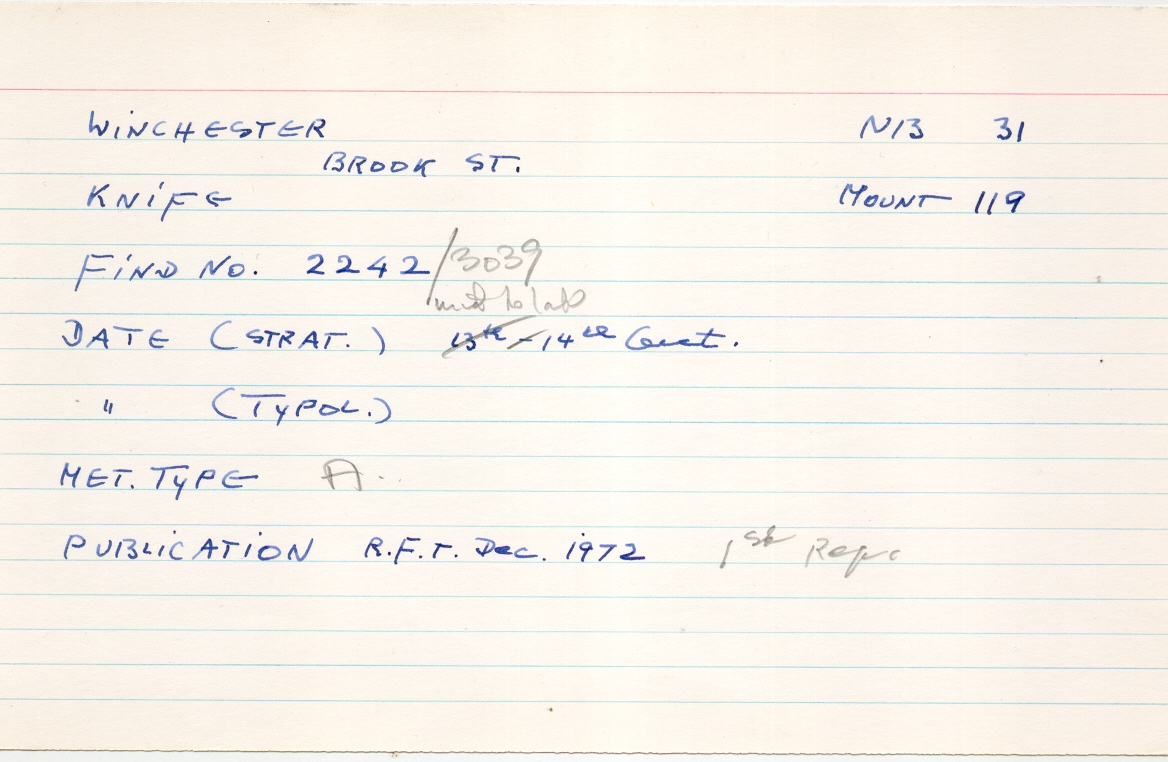 WINCHESTER N13 31
BROOK ST.
KNIFE MOUNT 119
FIND NO. 2242/3039
mid to late
DATE (STRAT.) 13th - 14th Cent.
" (TYPOL.)
MET. TYPE A.
PUBLICATION R.F.T. Dec. 1972 1st Rep.